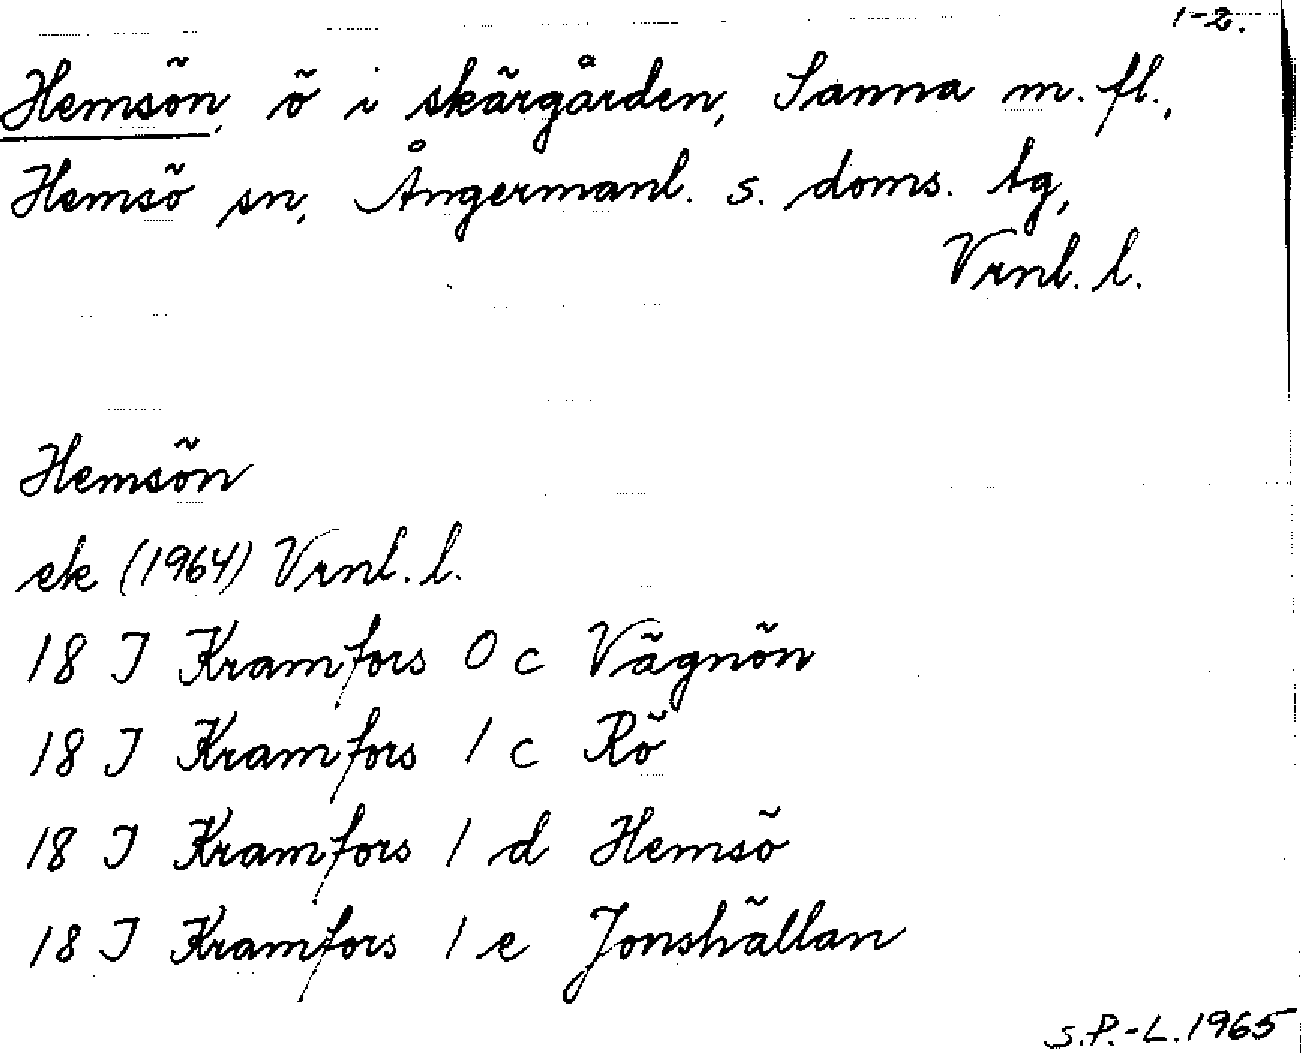 1-2.
Hemsön, ö i skärgården, Sanna m. fl.,
Hemsö sn, Ångermanl. s. doms. tg,
Vrnl. l.
Hemsön
ek (1964) Vrnl. l.
18 I Kramfors 0 c Vägnön
18 I Kramfors 1 c Rö
18 I Kramfors 1 d Hemsö
18 I Kramfors 1 e Jonshällan
S.P.-L. 1965